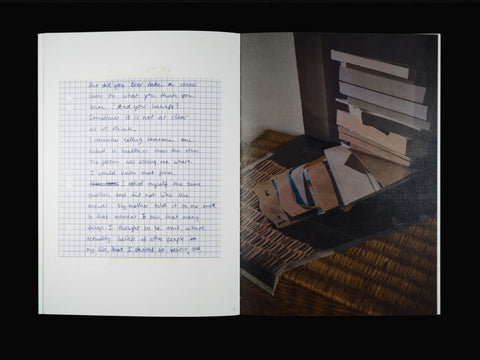 But did you ever take a closer
look on what you think you
know? And your beliefs?
Sometimes it is not as clear
as we think.
I remember telling someone one
is healthier than the other
The person was asking me where
I would know that from.
I asked myself the same
question and did not like the
answer. My mother told it to me once
In that moment I saw, that many
things I thought to be true, where
actually beliefs of other people in
my life, that I decided to believe, too